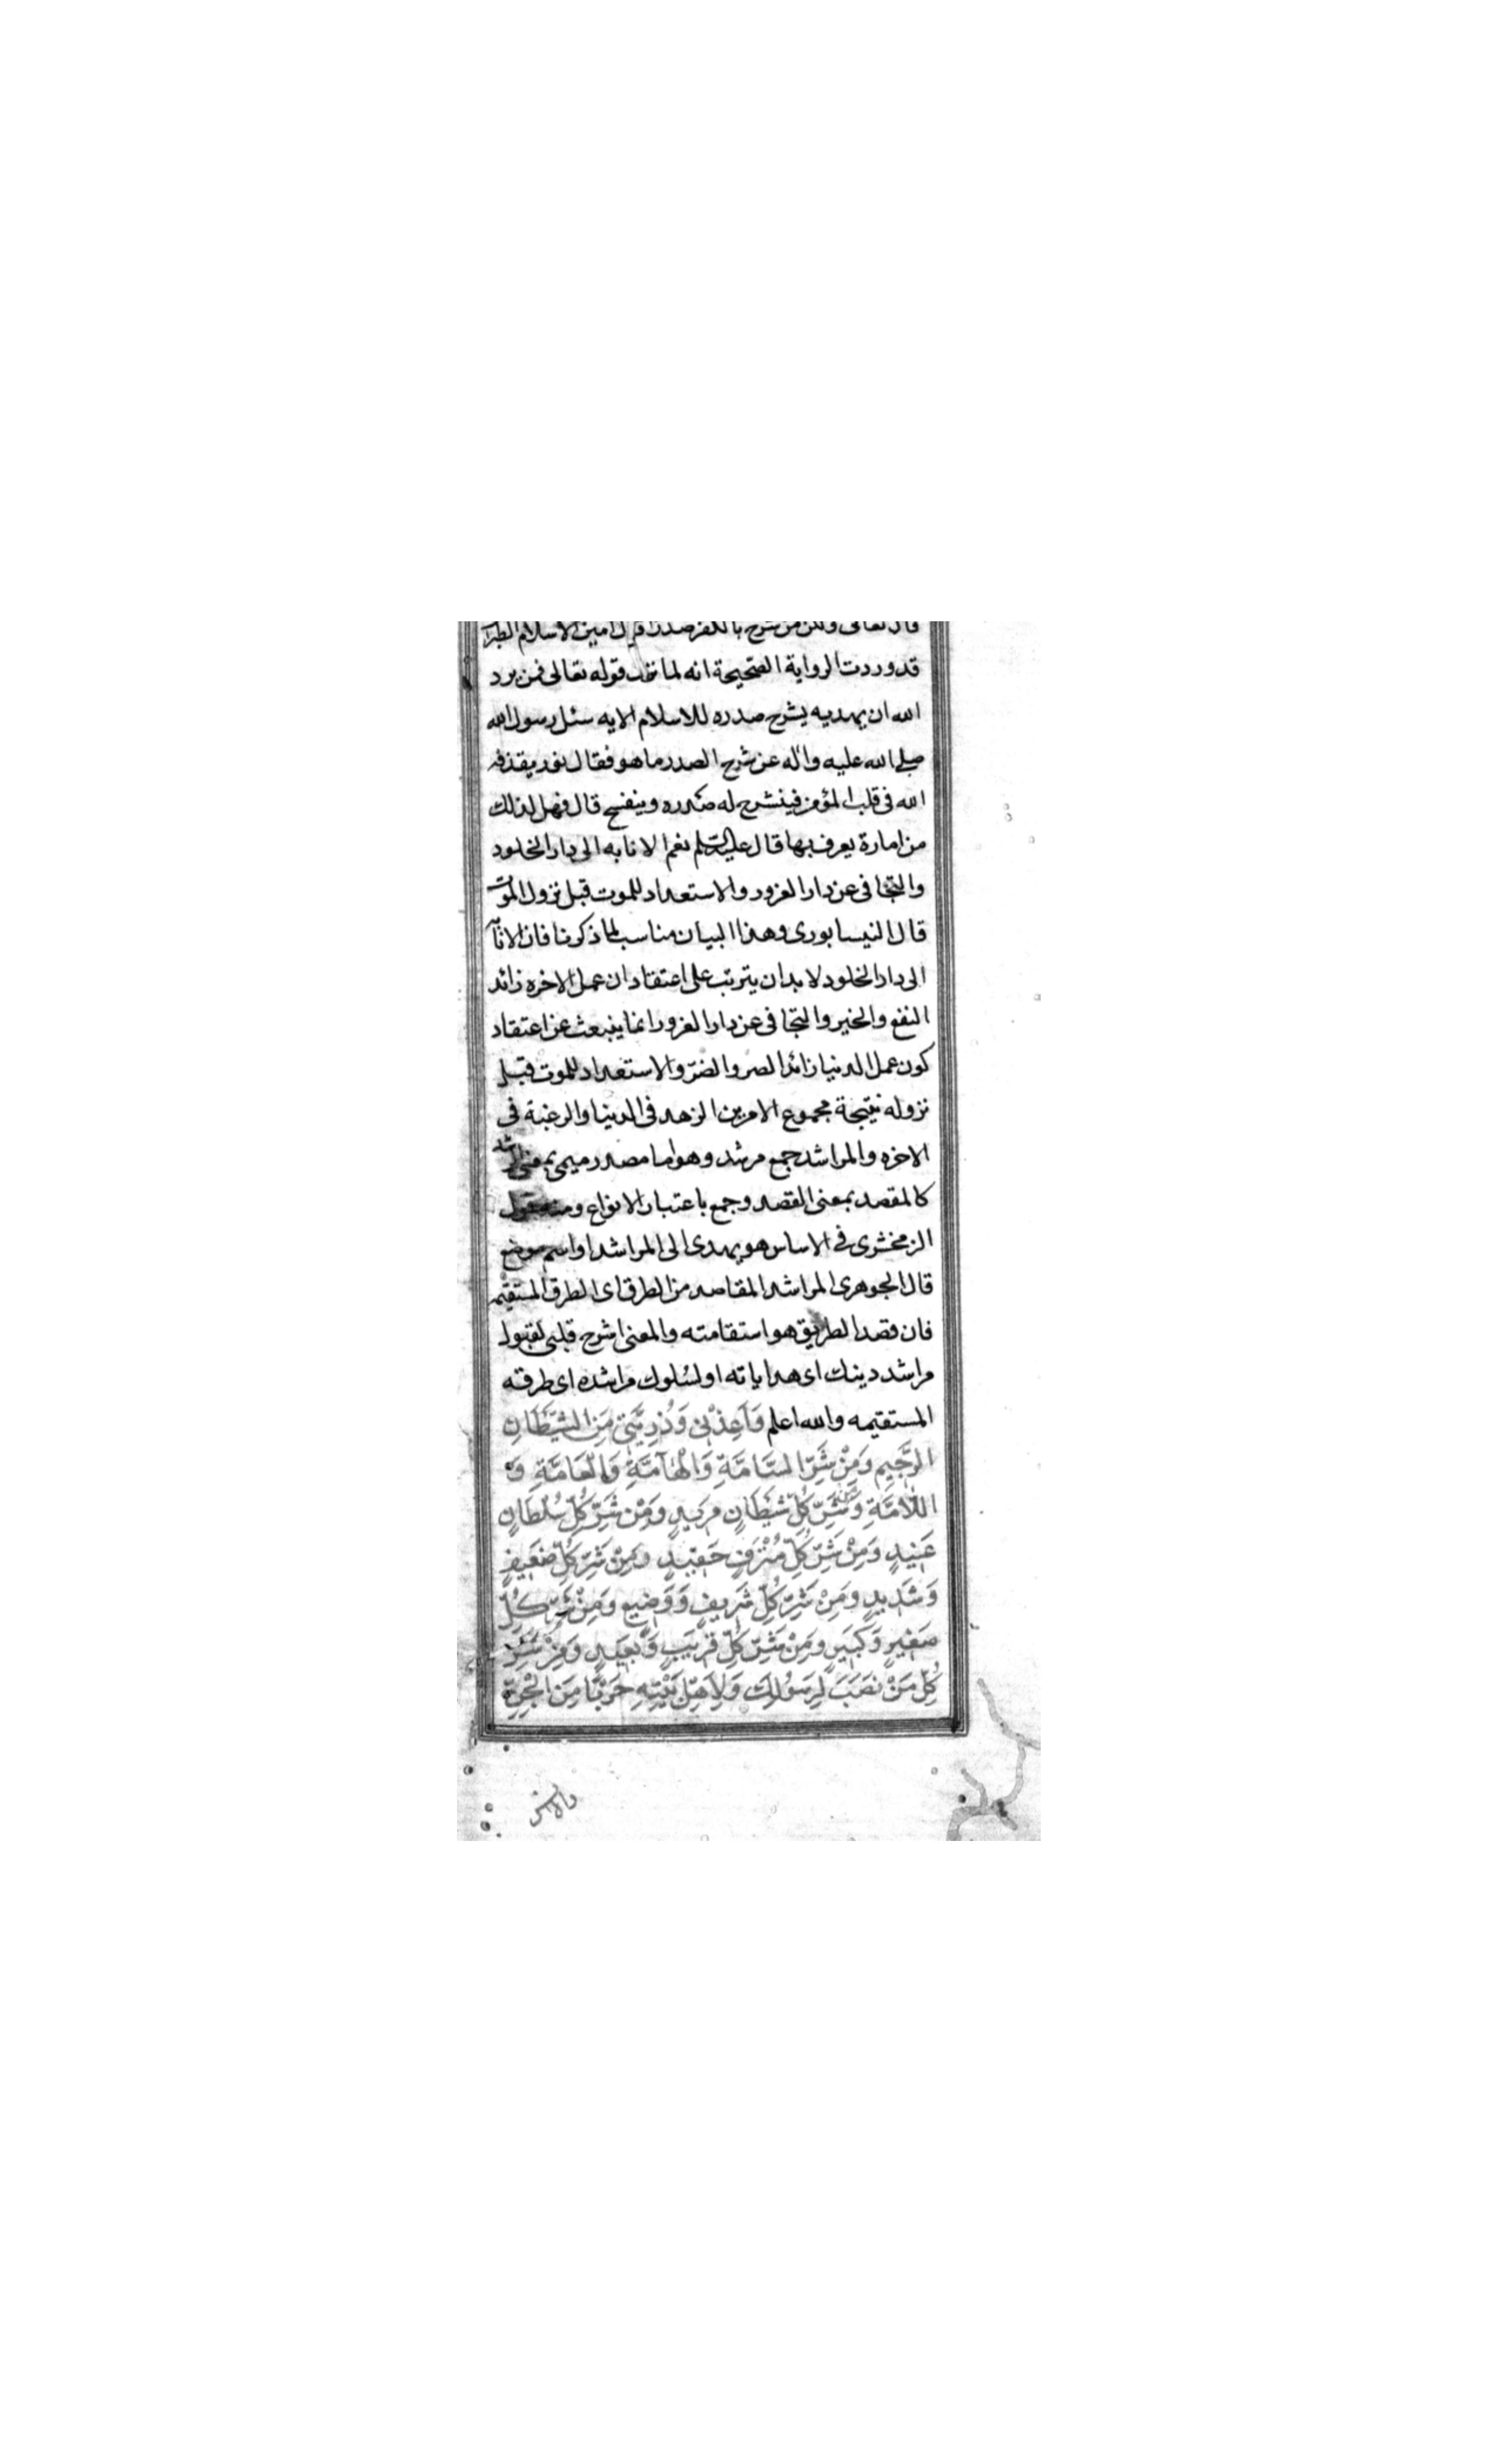 قال تعالى ولكن من شرح بالكفر صدرا قال امين الاسلام الطبرسى
قد وردت الرواية الصحيحة انه لما نزلت قوله تعالى فمن يرد
الله ان يهديه يشرح صدره للاسلام الايه سئل رسول الله
صلى الله عليه واله عن شرح الصدر ما هو فقال نور يقذفه
الله فى قلب المؤمن فينشرح له صدره وينفسح قال فهل لذلك
من امارة يعرف بها قال عليه السلم نعم الانابه الى دار الخلود
والتجافى عن دار الغرور والاستعداد للموت قبل نزول الموت
قال النيسابورى وهذا البيان مناسب لما ذكرنا فان الانابه
الى دار الخلود لا بد ان يترتب على اعتقاد ان عمل الاخره زائد
النفع والخير والتجافى عن دار الغرور انما ينبعث عن اعتقاد
كون عمل الدنيا زائد الضر والضرّ والاستعداد للموت قبل
نزوله نتيجة مجموع الامرين الزهد فى الدنيا والرغبة فى
الاخره والمراشد جمع مرشد وهو اما مصدر ميمى بمعنى الرشد
كالمقصد بمعنى القصد وجمع باعتبار الانواع ومنه قول
الزمخشرى فى الاساس هو يهدى الى المراشد او اسم موضع
قال الجوهرى المراشد المقاصد من الطرق اى الطرق المستقيمه
فان قصد الطريق هو استقامته والمعنى اشرح قلبى لقبول
مراشد دينك اى هداياته او لسلوك مراشده اى طرقه
المستقيمه والله اعلم وَاَعِذْنِى وَذُرِّيَّتِى مِنَ الشَّيْطَانِ
الرَّجِيمِ وَمِنْ شَرِّ السَّامَّةِ وَالْهَآمَّةِ وَالْعَامَّةِ وَ
اللَّامَّةِ وَمِنْ شَرِّ كُلِّ شَيْطَانٍ مَرِيدٍ وَمِنْ شَرِّ كُلِّ سُلْطَانٍ
عَنِيدٍ وَمِنْ شَرِّ كُلِّ مُتْرَفٍ حَفِيدٍ وَمِنْ شَرِّ كُلِّ ضَعِيفٍ
وَشَدِيدٍ وَمِنْ شَرِّ كُلِّ شَرِيفٍ وَوَضِيعٍ وَمِنْ شَرِّ كُلِّ
صَغِيرٍ وَكَبِيرٍ وَمِنْ شَرِّ كُلِّ قَرِيبٍ وَبَعِيدٍ وَمِنْ شَرِّ
كُلِّ مَنْ نَصَبَ لِرَسُولِكَ وَلِاَهْلِ بَيْتِهِ حَرْبًا مِنَ الْجِنِّ
والانس